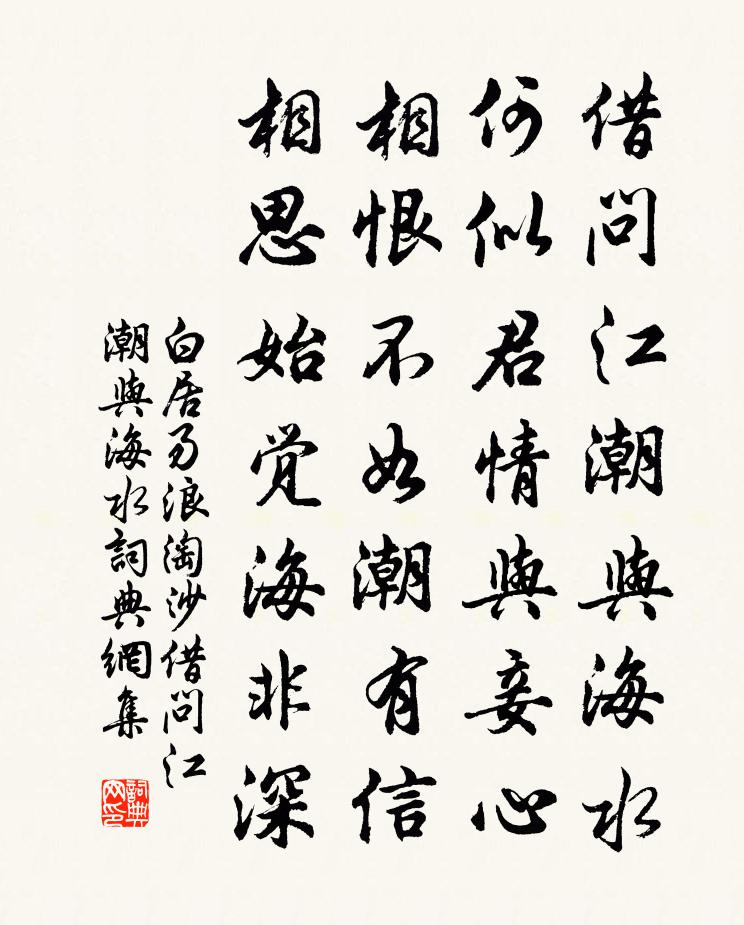 借问江潮與海水
何似君情與妾心
相恨不如潮有信
相思始觉海非深
白居易浪淘沙借问江
潮與海水詞典網集
詞典网印